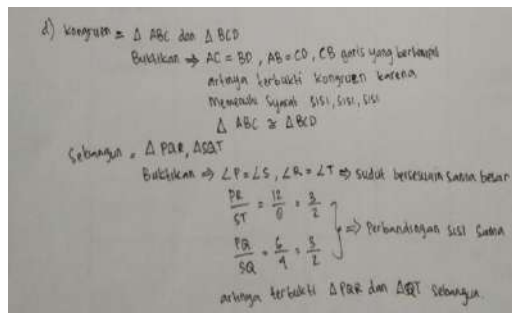 d) Kongruen = Δ ABC dan Δ BCD
Buktikan ⇒ AC = BD, AB = CD, CB garis yang berhimpit
artinya terbukti kongruen karena
memenuhi syarat sisi, sisi, sisi
Δ ABC ≅ Δ BCD
Sebangun = Δ PQR, ΔSQT
Buktikan ⇒ ∠P = ∠S, ∠R = ∠T ⇒ sudut bersesuaian sama besar
PR/ST = 12/8 = 3/2
⇒ Perbandingan sisi sama
PQ/SQ = 6/4 = 3/2
artinya terbukti Δ PQR dan ΔSQT sebangun.